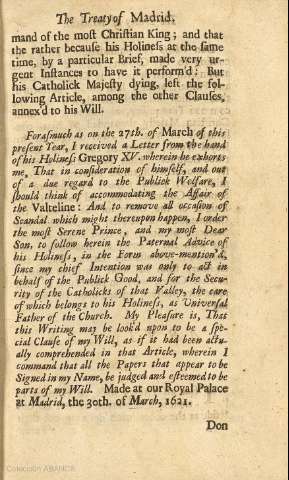 The Treaty of Madrid.
mand of the most Christian King; and that
the rather because his Holiness at the same
time, by a particular Brief, made very ur-
gent Instances to have it perform'd: But
his Catholick Majesty dying, left the fol-
lowing Article, among the other Clauses,
annex'd to his Will.
Forasmuch as on the 27th. of March of this
present Year, I received a Letter from the hand
of his Holiness Gregory XV. wherein he exhorts
me, That in consideration of himself, and out
of a due regard to the Publick Welfare, I
should think of accommodating the Affair of
the Valteline: And to remove all occasion of
Scandal which might thereupon happen, I order
the most Serene Prince, and my most Dear
Son, to follow herein the Paternal Advice of
his Holiness, in the Form above-mention'd,
since my chief Intention was only to act in
behalf of the Publick Good, and for the Secu-
rity of the Catholicks of that Valley, the care
of which belongs to his Holiness, as Universal
Father of the Church. My Pleasure is, That
this Writing may be look'd upon to be a spe-
cial Clause of my Will, as if it had been actu-
ally comprehended in that Article, wherein I
command that all the Papers that appear to be
Signed in my Name, be judged and esteemed to be
parts of my Will. Made at our Royal Palace
at Madrid, the 30th. of March, 1621.
Don
Colección ABANCA